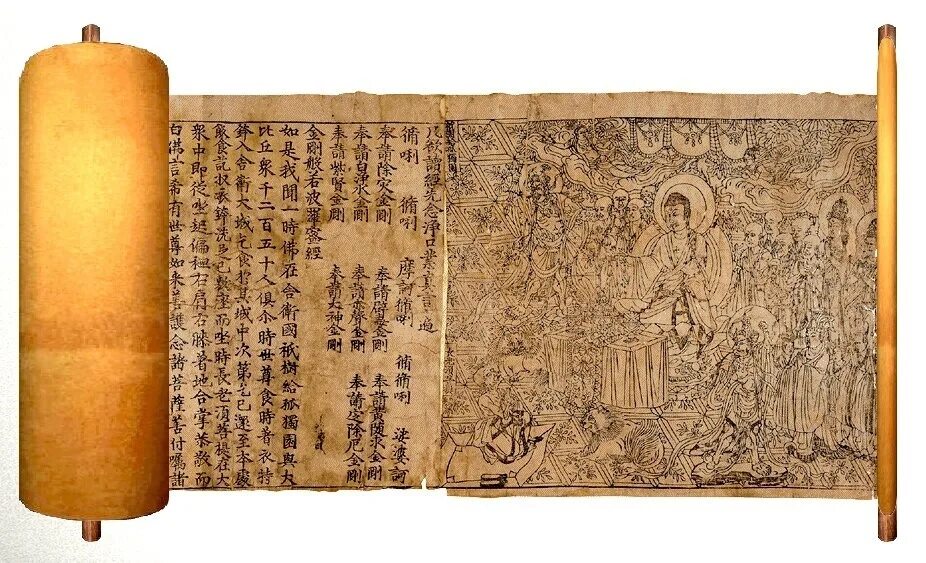 凡欲讀經先念淨口業真言一遍
脩唎 脩唎 摩訶脩唎 脩脩唎 娑婆訶
奉請除灾金剛 奉請辟毒金剛 奉請黃随求金剛
奉請白淨水金剛 奉請赤聲金剛 奉請定除厄金剛
奉請紫賢金剛 奉請大神金剛
金剛般若波羅蜜經
如是我聞一時佛在舍衛國祇樹給孤獨園與大
比丘衆千二百五十人俱尒時世尊食時著衣持
鉢入舍衛大城乞食於其城中次第乞已還至本處
飯食訖收衣鉢洗足已敷座而坐時長老須菩提在大
衆中即從坐起偏袒右肩右膝著地合掌恭敬而
白佛言希有世尊如来善護念諸菩薩善付囑諸